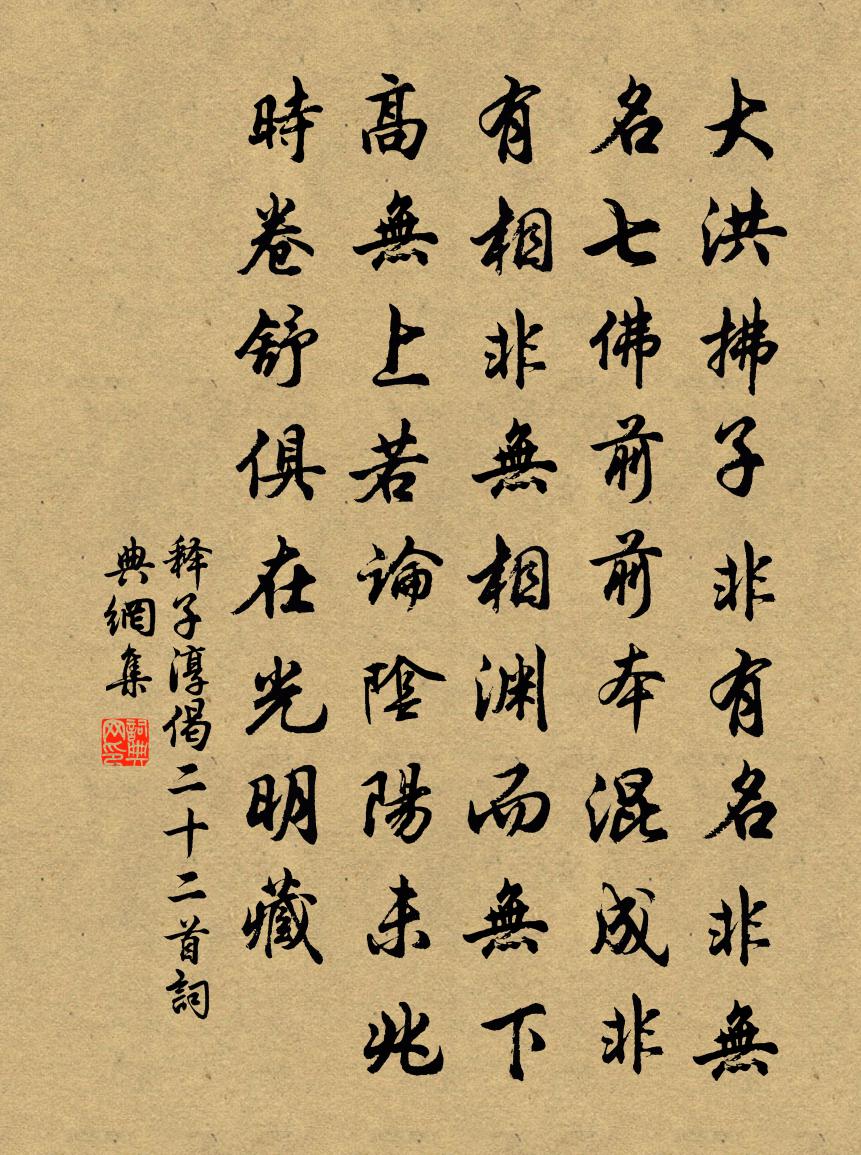 大洪拂子非有名非無
名七佛前前本混成非
有相非無相渊而無下
高無上若論陰陽未兆
時卷舒俱在光明藏
释子淳偈二十二首詞
典網集
詞典網印